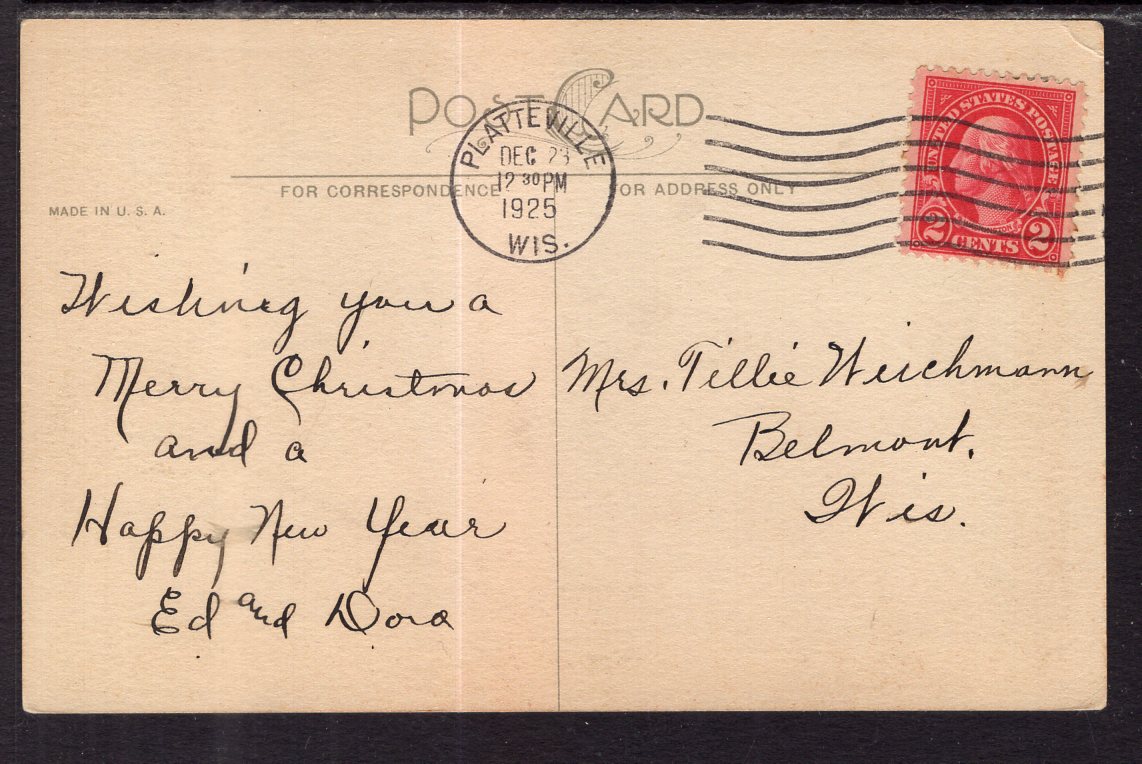 POST CARD
PLATTEVILLE
DEC 23
12 30 PM
1925
WIS.
UNITED STATES POSTAGE
2 CENTS 2
FOR CORRESPONDENCE
FOR ADDRESS ONLY
MADE IN U. S. A.
Wishing you a
Merry Christmas
and a
Happy New Year
Ed and Dora
Mrs. Tillie Weichmann
Belmont.
Wis.